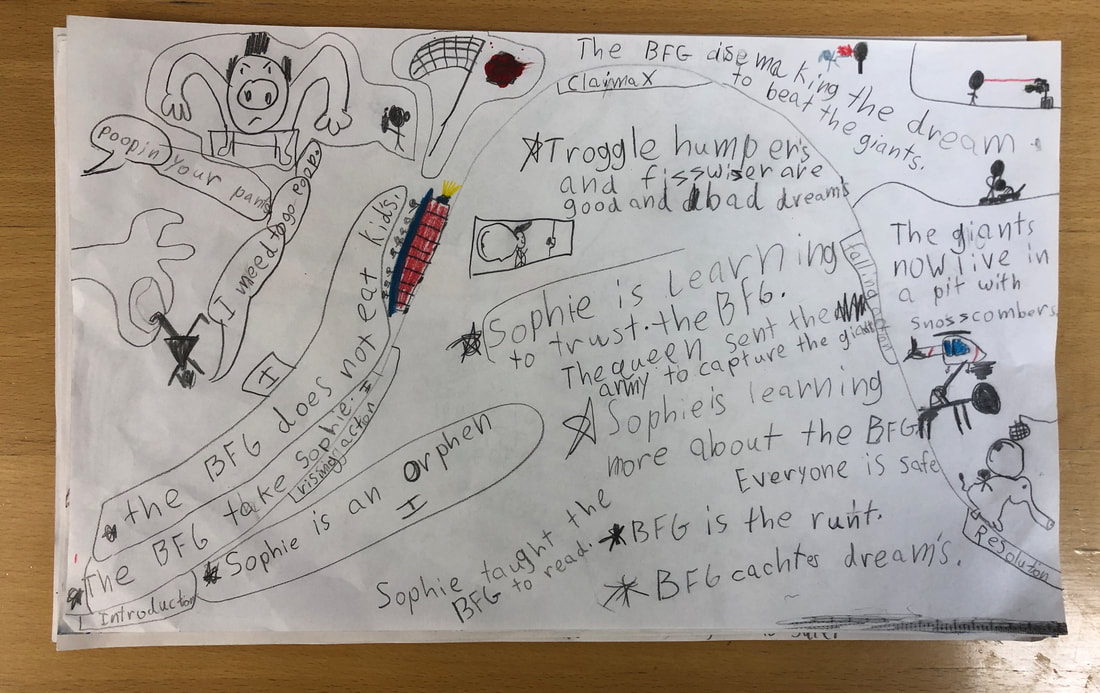 The BFG
Claimax
making the dream
to beat the giants.
poopin your pants
I wneed to go poop
Troggle humper's
and fisswiser are
good and bad dream's
the BFG does not eat kids!
I
The BFG take Sophie. I
rising action
Introducton
Sophie is an orphen
I
Sophie is Learning
to trust. the BFG.
The queen sent the
army to capture the giant
Sophie is learning
more about the BFG
Everyone is safe
BFG is the runt.
BFG cachtes dream's.
Sophie taught the
BFG to read.
falling action
The giants
now live in
a pit with
snosscombers.
Resolution